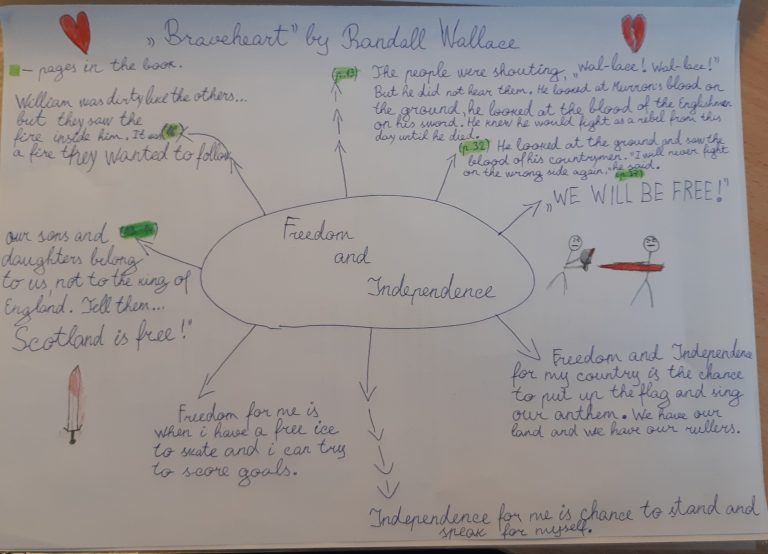 „Braveheart" by Randall Wallace
– pages in the book.
William was dirty like the others...
but they saw the
fire inside him. It was
a fire they wanted to follow
(p.13) The people were shouting, „Wal-lace! Wal-lace!"
But he did not hear them. He looked at Murron's blood on
the ground, he looked at the blood of the Englishmen
on his sword. He knew he would fight as a rebel from this
day until he died.
(p.32) He looked at the ground and saw the
blood of his countrymen. "I will never fight
on the wrong side again," he said.
„WE WILL BE FREE!"
Freedom
and
Independence
our sons and
daughters belong
to us, not to the king of
England. Tell them...
Scotland is free!"
Freedom for me is
when i have a free ice
to skate and i can try
to score goals.
Freedom and Independence
for my country is the chance
to put up the flag and sing
our anthem. We have our
land and we have our rullers.
Independence for me is chance to stand and
speak for myself.